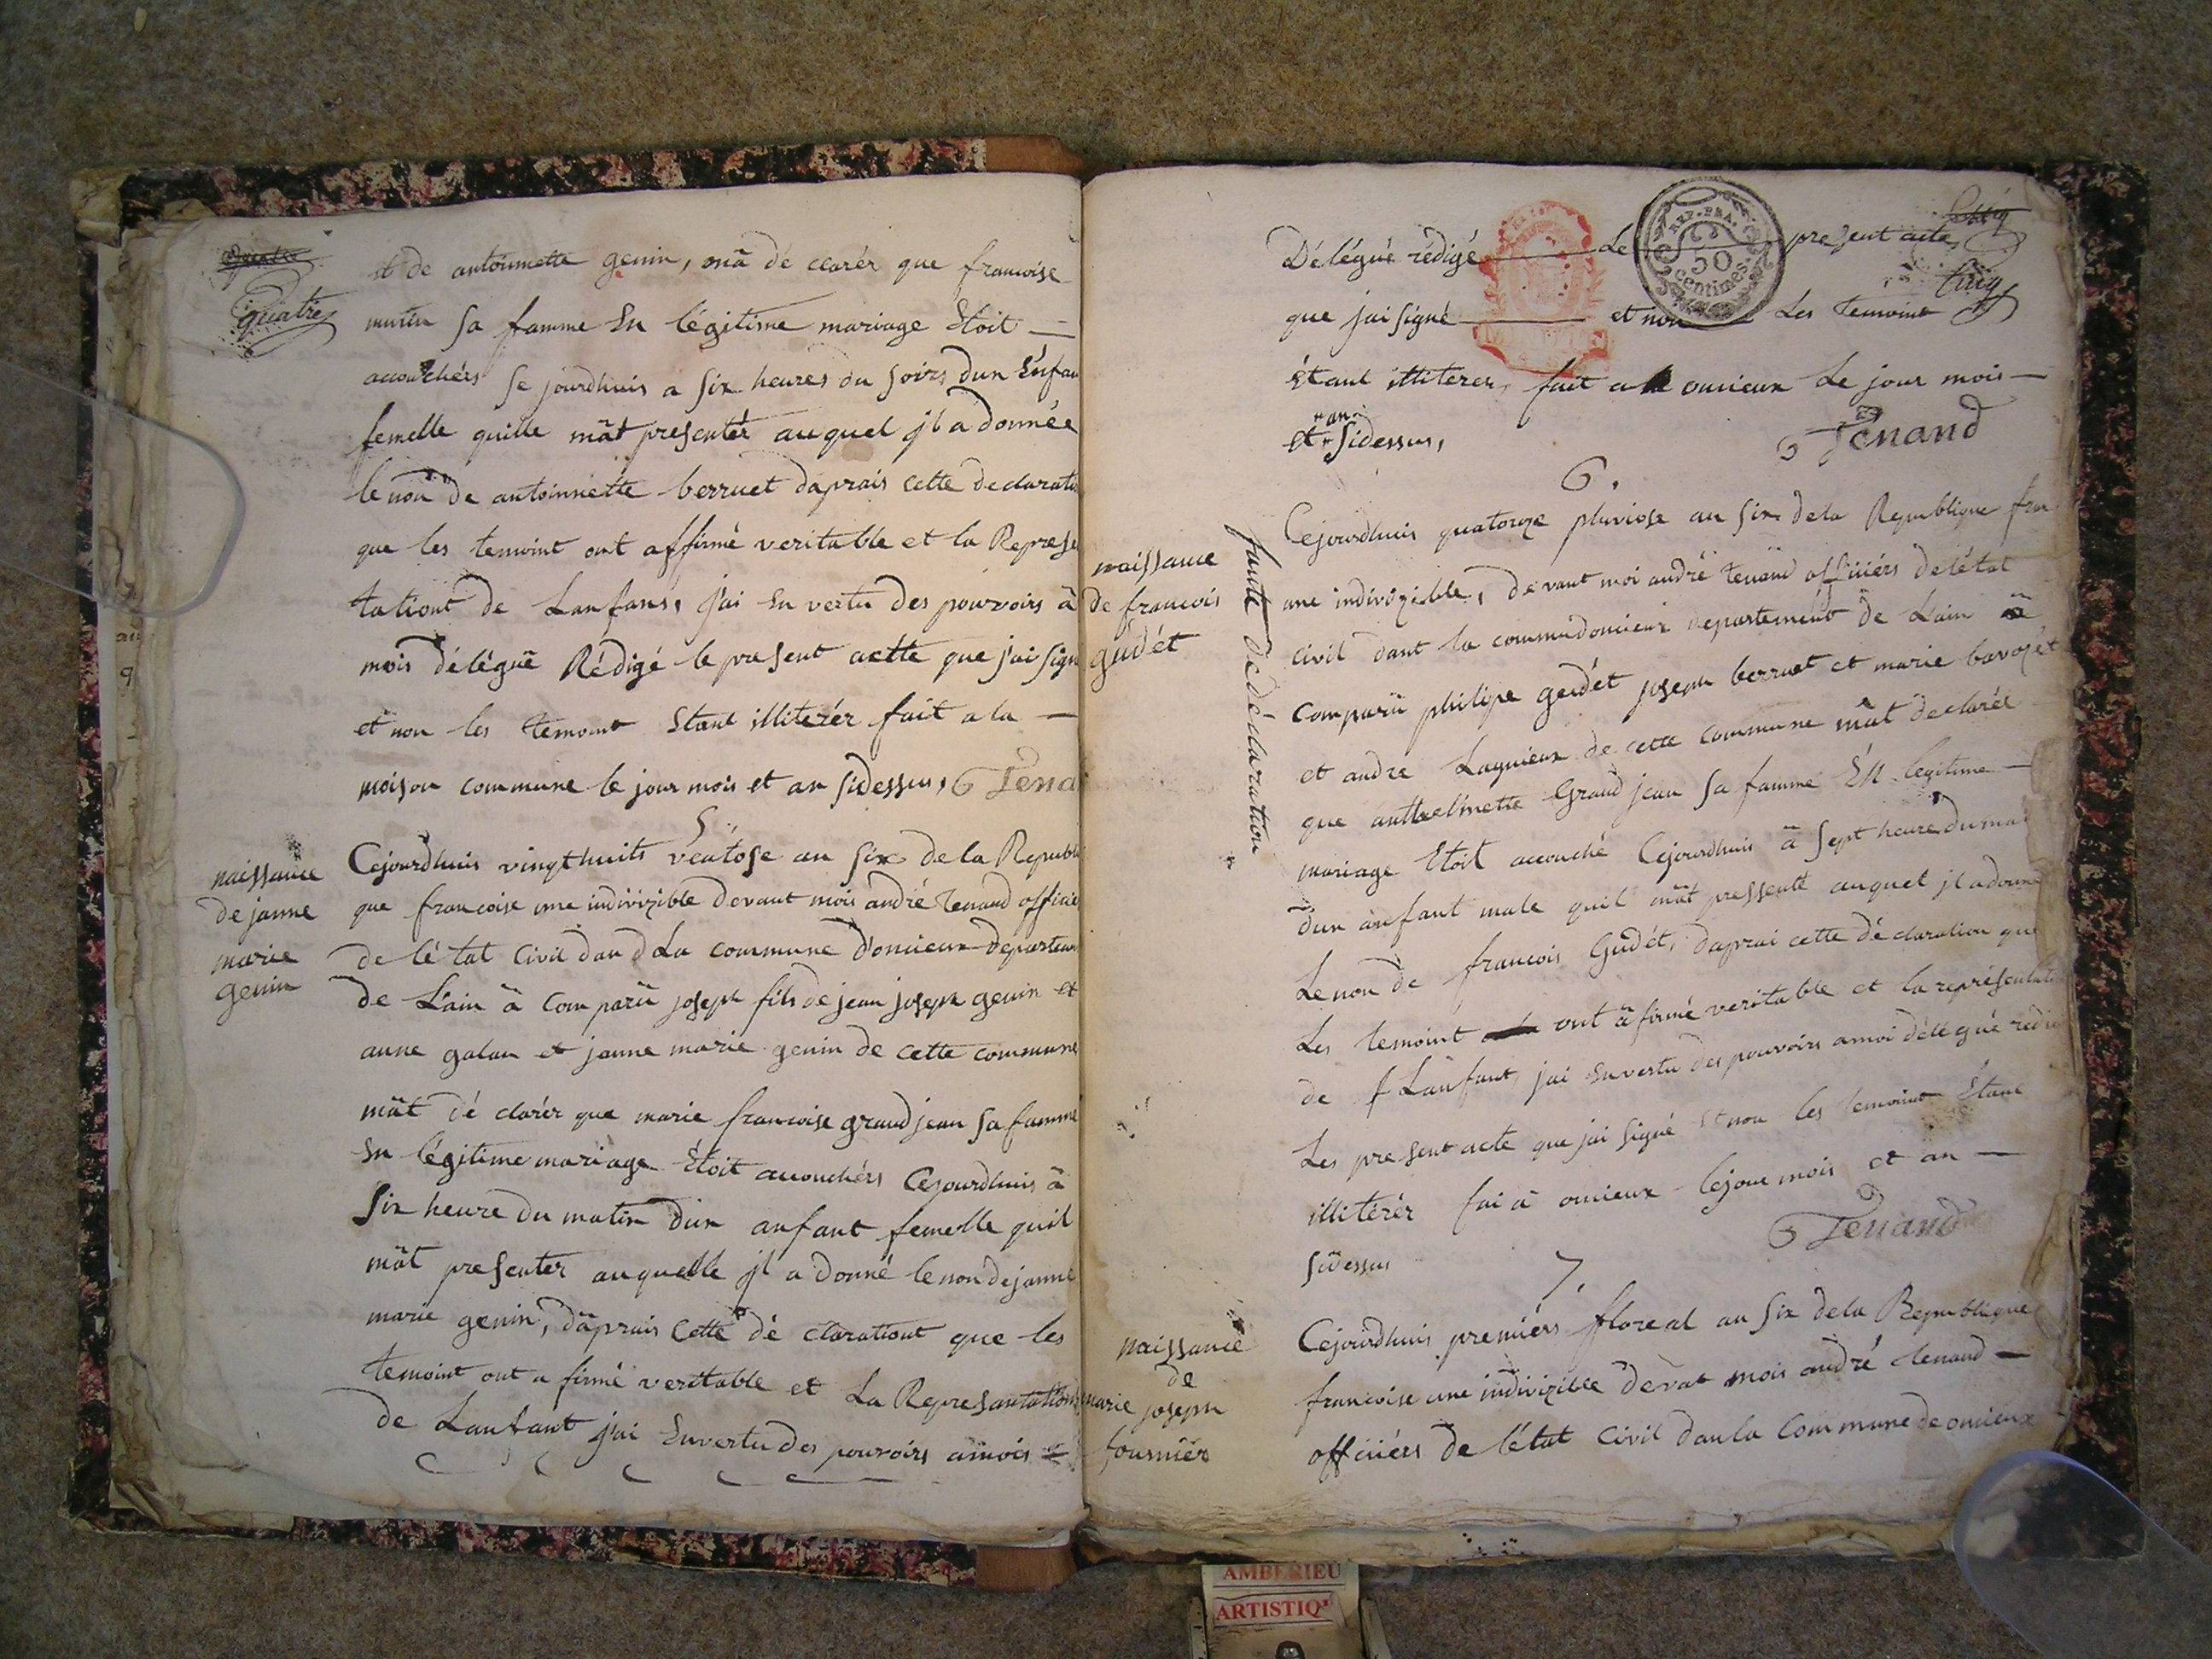 quatre
et de antoinnette genin, mâ dé clarér que francoise
mutin sa famme En légitime mariage Etoit
accouchérs se jourdhuis a six heures du soirs dun Enfan
femelle quille mât presentér auquel jl a donnée
le non de antoinnette berruet daprais cette declaratio
que les temoint ont affirmé veritable et la Represe
tationt de Lanfans, j'ai En vertu des pourvoirs à
mois délégué Rédigé le present actte que j'ai sign
et non les temoint Etant illiterér fait a la
maison commune le jour mois et an sidessus, Tena
5
naissance
de janne
marie
genin
Cejourdhuis vingthuits véntose an six de la Republi
que francoise une indivizible devant mois andré Tenand officie
de lé tat civil dand La commune d'oncieux departem
de L'ain â comparü joseph fils de jean joseph genin et
anne galan et janne marie genin de cette commune
mât dé clarér que marie francoise grandjean sa famme
En légitime mariage Etoit accouchérs Cejourdhuis â
six heure du matin dun anfant femelle quil
mât presenter auquelle jl a donné le non de janne
marie genin, dâprais Cette dé claratiout que les
temoint ont a firmé verittable et La Represantation
de Lanfant j'ai Envertu des pouvoirs amois
Délégué rédigé le present acte
Cinq
que j'ai signé et non Les temoint
Etant illiterer, fait a oncieux Le jour mois
an
et sidessus, Tenand
REP. FRA.
50
centimes.
6.
naissance
de francois
gudét
faute de déclaration
Cejourdhuis quatorze pluviose an six dela Republique fran
une indivizible, devant moi andré tenand officiérs delétat
civil dant la commudoncieux departement de Lain â
comparü philipe gudét joseph berruet et marie bavozét
et andre Lagnieux de cette commune mât declarér
que anthelmette Grandjean sa famme En legitime
mariage Etoit accouché Cejourdhuis â sept heure du ma
dun anfant male quil mât pressenté auquel jl a donné
Le non de francois Gudét, daprai cette dé claration que
Les temoint ont âfirmé veritable et la représentati
de Lanfant, j'ai Envertu des pouvoirs amoi délégué rédi
Les present acte que jai signé et non les temoint Etant
illitérér fai â oncieux lejour mois et an
sidessus Tenand
7.
naissance
de
marie joseph
fournier
Cejourdhuis premiérs floreal an six dela Republique
francoise une indivizible dévat mois andré tenand
officiérs de létat civil danla Commune de oncieux
AMBERIEU
ARTISTIQ